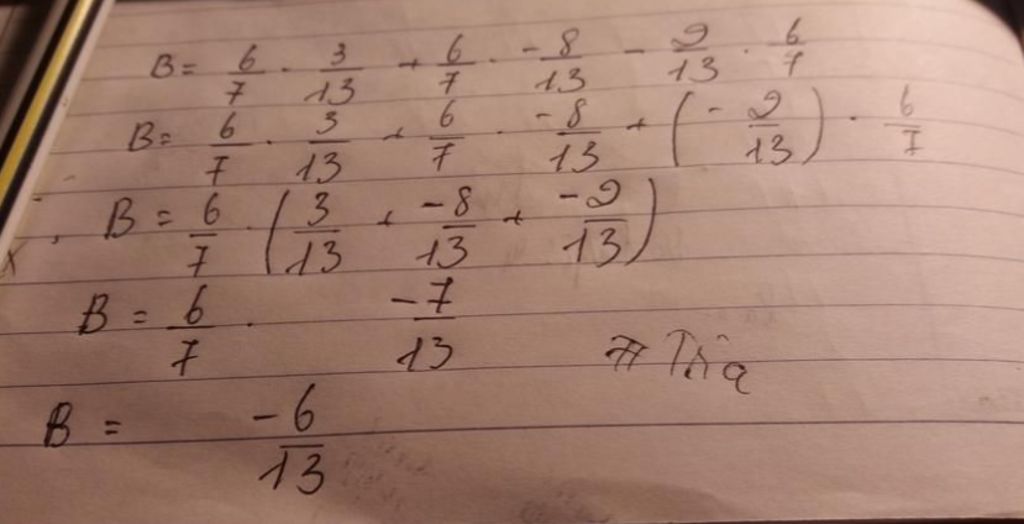 B = 6/7 · 3/13 + 6/7 · -8/13 - 2/13 · 6/7
B = 6/7 · 3/13 + 6/7 · -8/13 + (- 2/13) · 6/7
B = 6/7 · (3/13 + -8/13 + -2/13)
B = 6/7 · -7/13 #
B = -6/13